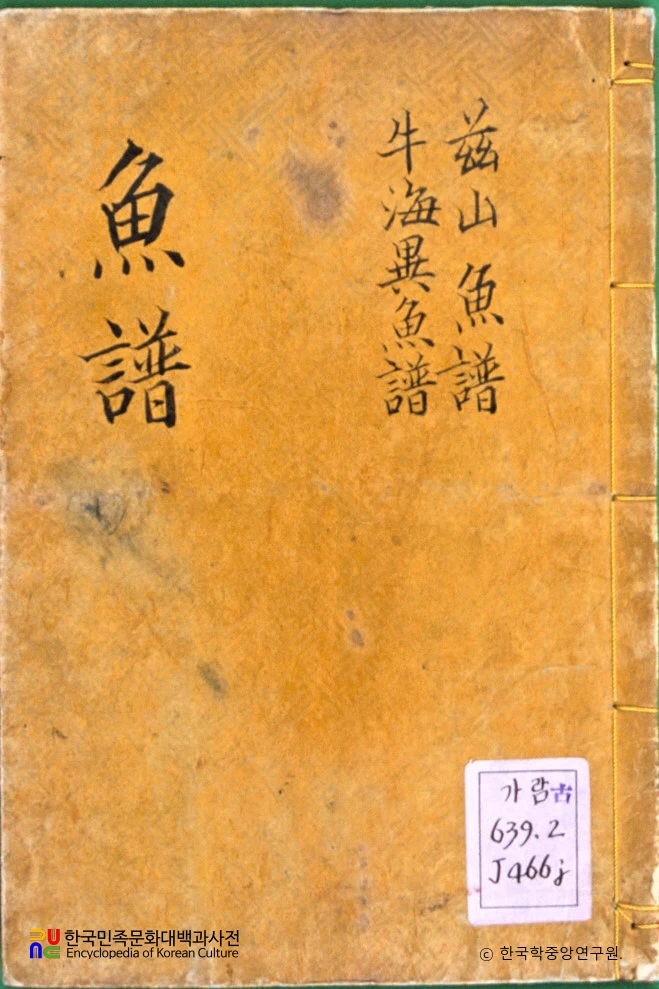 玆山 魚譜
牛海異魚譜
魚譜
가람古
639.2
J466j
한국민족문화대백과사전
Encyclopedia of Korean Culture
© 한국학중앙연구원.